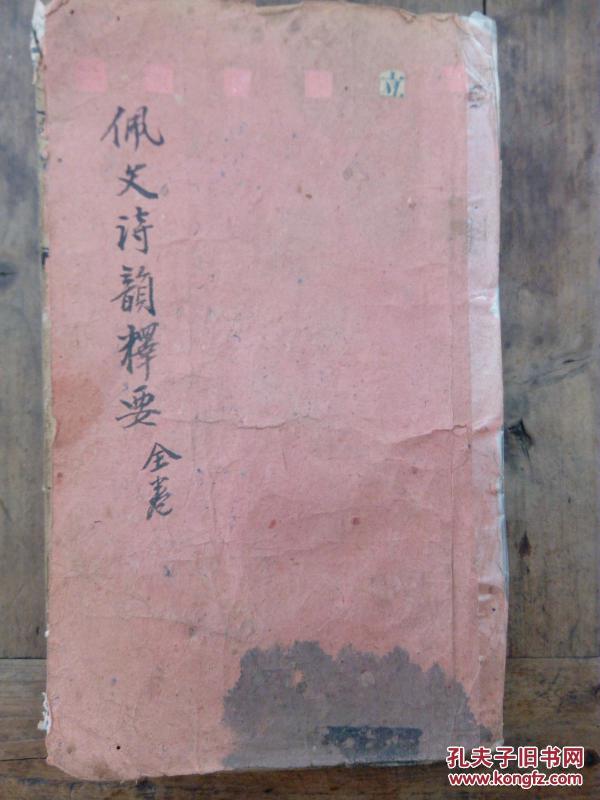 立
佩文詩韻釋要
全卷
孔夫子旧书网
www.kongfz.com